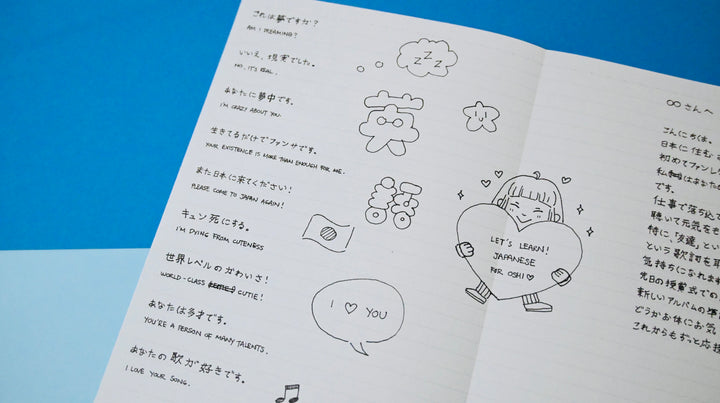 これは夢ですか?
AM I DREAMING?
いいえ、現実でした。
NO, IT'S REAL.
あなたに夢中です。
I'M CRAZY ABOUT YOU.
生きてるだけでファンサです。
YOUR EXISTENCE IS MORE THAN ENOUGH FOR ME.
また日本に来てください!
PLEASE COME TO JAPAN AGAIN!
キュン死にする。
I'M DYING FROM CUTENESS
世界レベルのかわいさ!
WORLD-CLASS CUTIE!
あなたは多才です。
YOU'RE A PERSON OF MANY TALENTS.
あなたの歌が好きです。
I LOVE YOUR SONG.
Z Z Z Z
英
語
I ♡ YOU
LET'S LEARN!
JAPANESE
FOR OSHI ♡
○○さんへ
こんにちは。
日本に住む
初めてファンレ
私はあなた
です。
仕事で落ち込
聴いて元気をも
特に、「友達」とい
という歌詞を耳
気持ちになれま
先日の授賞式での
新しいアルバムの準
どうかお体にお気
これからもずっと応援